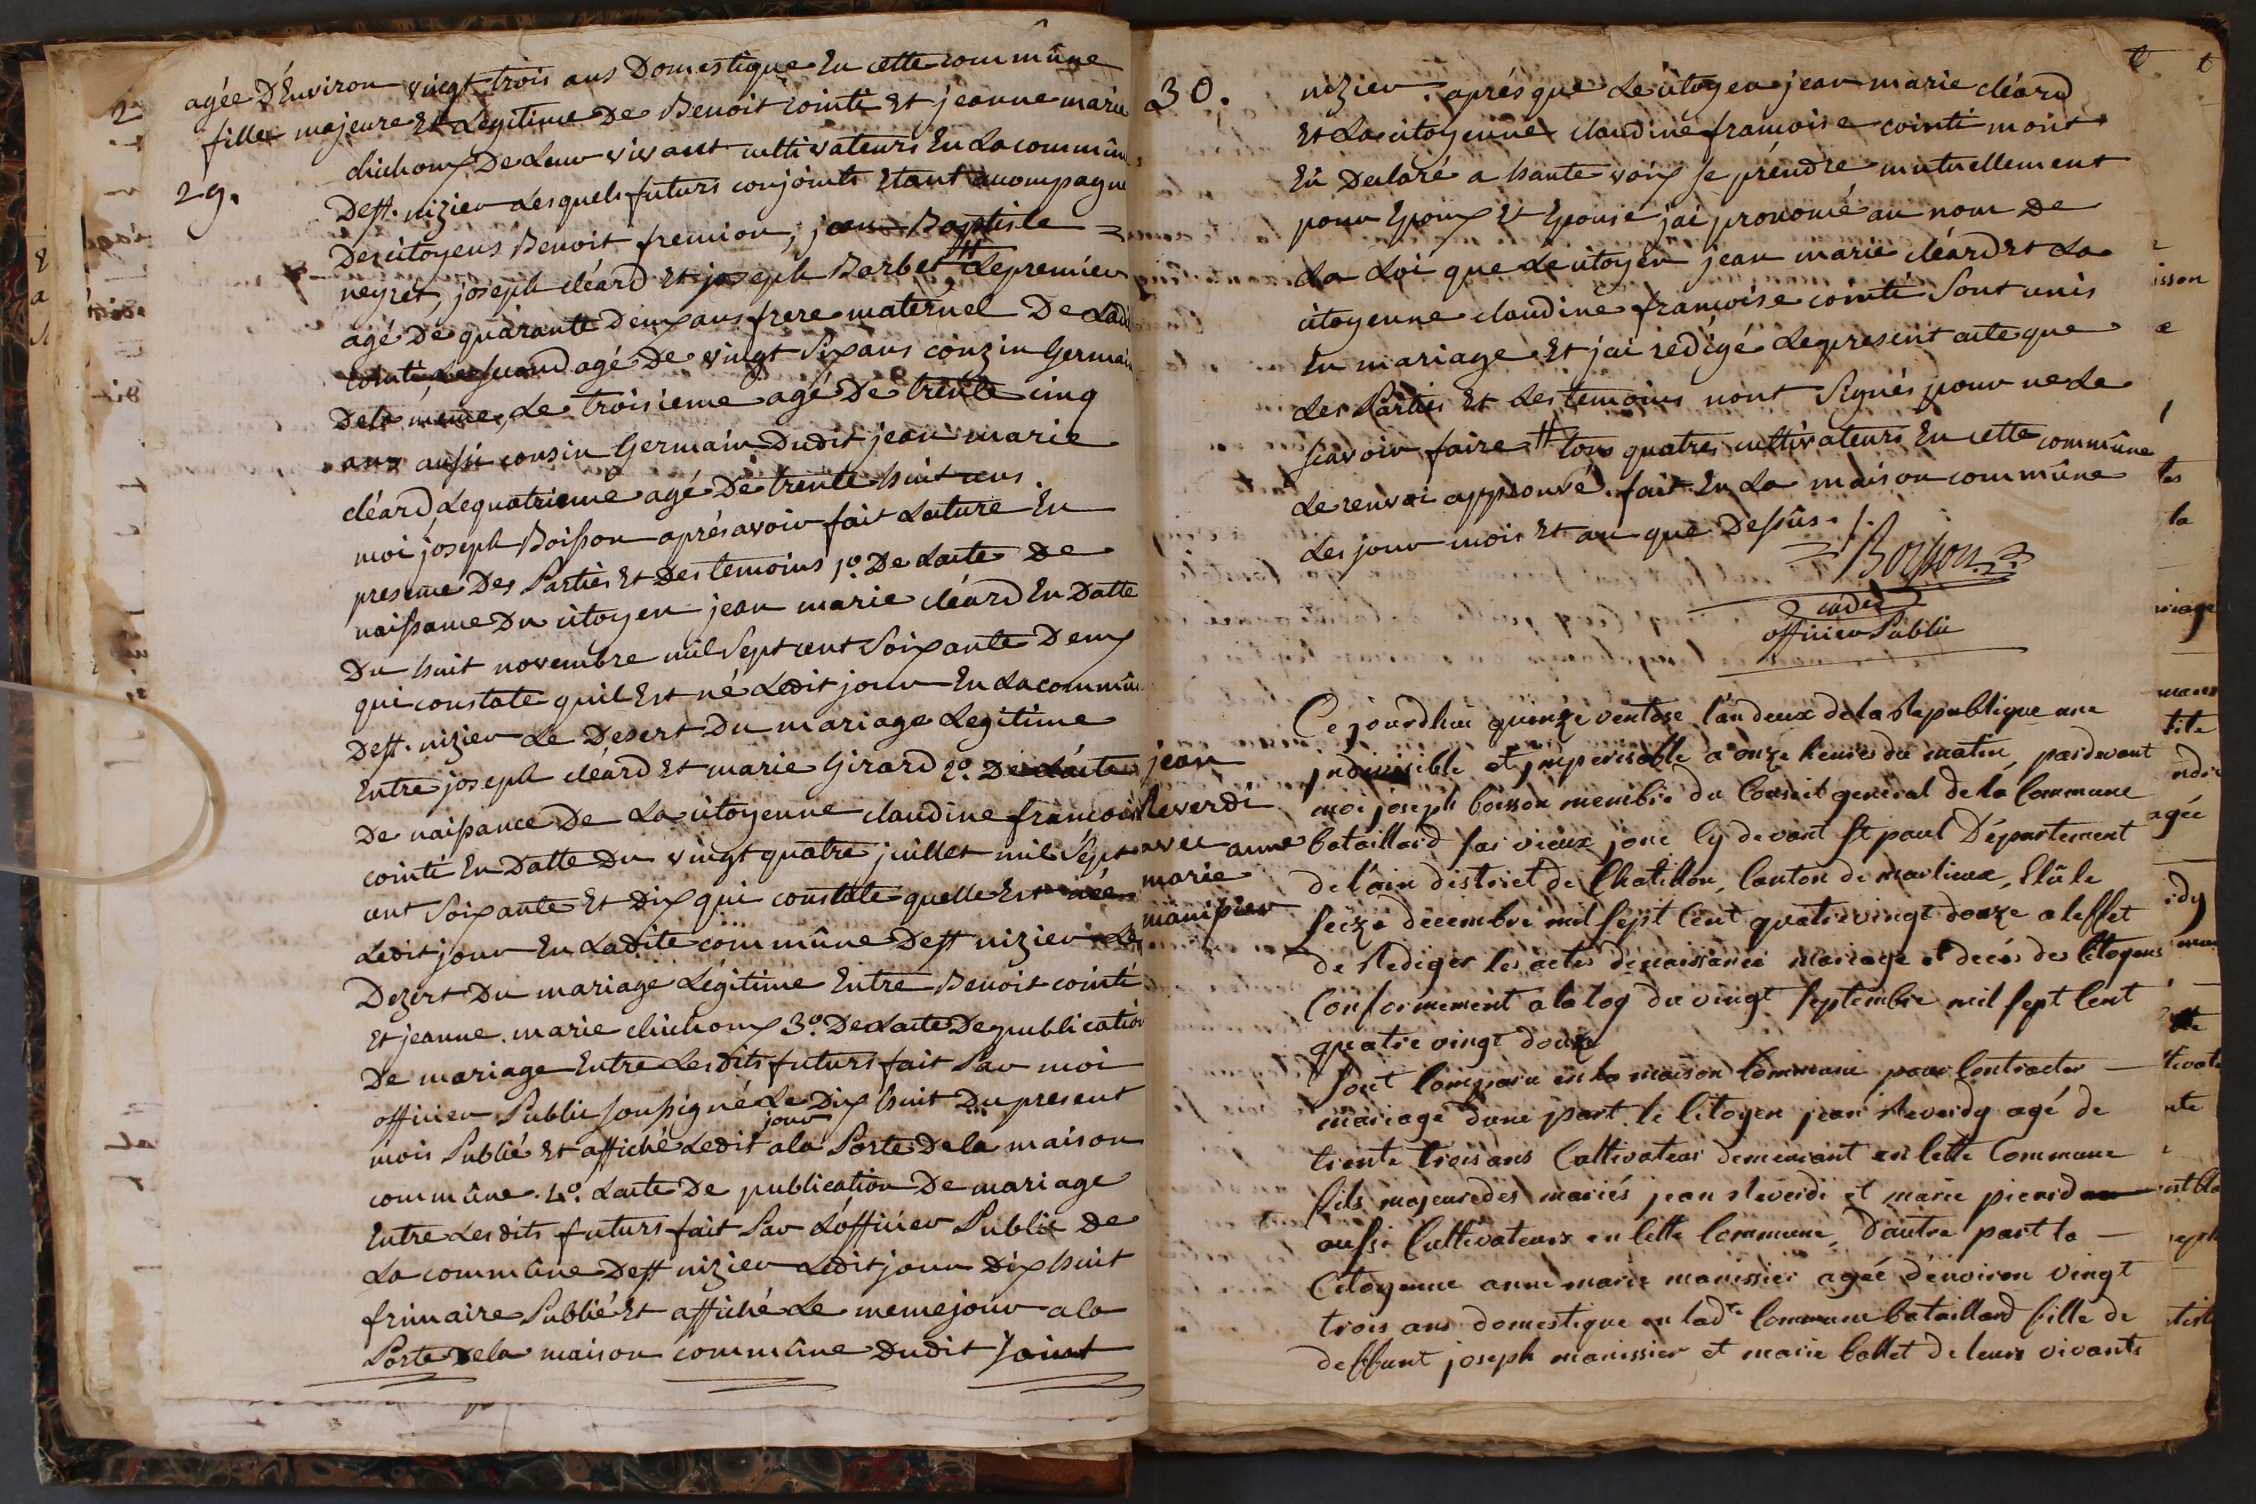 29.
agée D'Environ vingt trois ans Domestique En cette commûne
fille majeure Et Legitime De Benoit cointi Et jeanne marie
chichoux De Leur vivant cultivateurs En La commûn
Dest. nizier Lesquels futurs conjoints Etant acompagné
Des citoyens Benoit fremion, jean Baptiste =
neyret, joseph cléard Et joseph Barbet # Le premier
agé De quarante Deux ans frere maternel De Ladi
cointi Le second agé De vingt Six ans couzin Germain
De la même, Le troisieme agé De trente cinq
ans aussi cousin Germain Dudit jean marie
cléard Le quatrieme agé De trente huit ans.
moi joseph Boisson aprés avoir fait Lecture En
presence Des Parties Et Des temoins 1º. De Lacte De
naissance Du citoyen jean marie cléard En Datte
Du huit novembre mil Sept cent Soixante Deux
qui constate quil Est né Ledit jour En La commûn
Dest. nizier Le Desert Du mariage Legitime
Entre joseph cléard Et marie Girard 2º. De Lacte
De naissance De La citoyenne claudine francoise
cointi En Datte Du vingt quatre juillet mil Sept
cent Soixante Et Dix qui constate quelle Est née
Ledit jour En Ladite commûne Dest nizier Le
Dezert Du mariage Légitime Entre Benoit cointi
Et jeanne marie chichoux 3º. De Lacte De publication
De mariage Entre Lesdits futurs fait Par moi
officier Public Soussigné Le Dix huit Du present
mois Publié Et affiché Ledit jour a la Porte De la maison
commûne. 4º. Lacte De publication De mariage
Entre Lesdits futurs fait Par L'officier Public De
La commûne Dest nizier Ledit jour Dix huit
frimaire Publié Et affiché Le meme jour a la
Porte De la maison commûne Dudit Saint
30.
nizier. aprés que Le citoyen jean marie cléard
Et La citoyenne claudine francoise cointi mont
Eû Declaré a haute voix Se prendre mutuellement
pour Epoux Et Epouse jai prononcé au nom De
La Loi que Le citoyen jean marie cléard Et La
citoyenne claudine francoise cointi Sont unis
En mariage Et jai redigé Le present acte que
Les Parties Et Les temoins nont Signés pour ne Le
scavoir faire # tous quatres cultivateurs En cette commûne
Le renvoi approuvé. fait En La maison commûne
Les jour mois Et an que Dessûs. /.
Boisson
cadet
officier Public
jean
Reverdi
avec anne
marie
manissier
Ce jourdhui quinze ventose l'an deux de la Republique une
jndivisible et jmperissable a onze heures du matin, pardevant
moi joseph boisson membre du Conseil general de la Commune
bataillard sur vieux jonc Cy devant St paul Département
de l'ain district de Chatillon, Canton de marlieux, Elû le
seize decembre mil sept Cent quatre vingt douze a leffet
de Rediger les actes de naissance mariage et decés des Citoyens
Conformement a la loy du vingt septembre mil sept Cent
quatre vingt douze
sont Comparu en la maison Commune pour Contracter —
mariage dune part le Citoyen jean Reverdy agé de
trente trois ans Cultivateur demeurant en Cette Commune
fils majeur des mariés jean Reverdi et marie picard
aussi Cultivateurs en Cette Commune, d'autre part la —
Citoyenne anne marie manissier agée d'environ vingt
trois ans domestique en lad.te Commune bataillard fille de
deffunt joseph manissier et marie ballet de leurs vivants